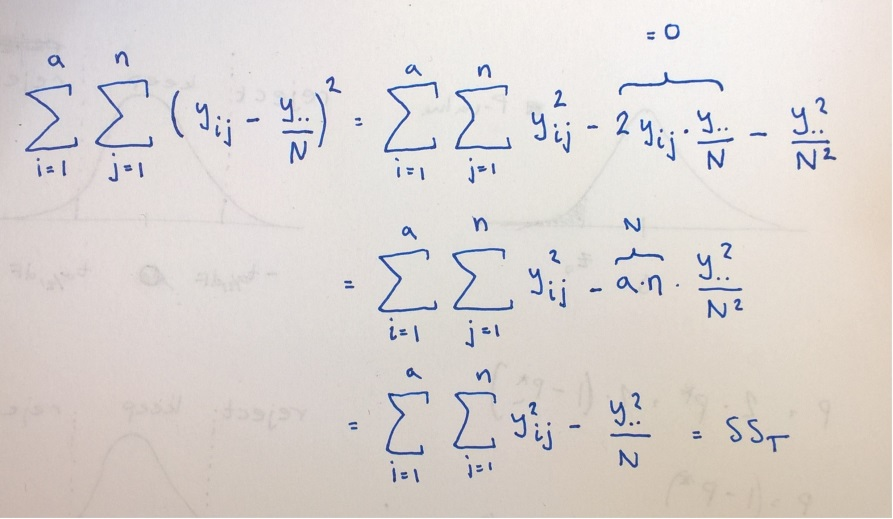 = 0
\sum_{i=1}^{a} \sum_{j=1}^{n} ( y_{ij} - \frac{y_{..}}{N} )^2 = \sum_{i=1}^{a} \sum_{j=1}^{n} y_{ij}^2 - \overbrace{2 y_{ij} \cdot \frac{y_{..}}{N}} - \frac{y_{..}^2}{N^2}
= \sum_{i=1}^{a} \sum_{j=1}^{n} y_{ij}^2 - \overbrace{a \cdot n}^{N} \cdot \frac{y_{..}^2}{N^2}
= \sum_{i=1}^{a} \sum_{j=1}^{n} y_{ij}^2 - \frac{y_{..}^2}{N} = SS_T